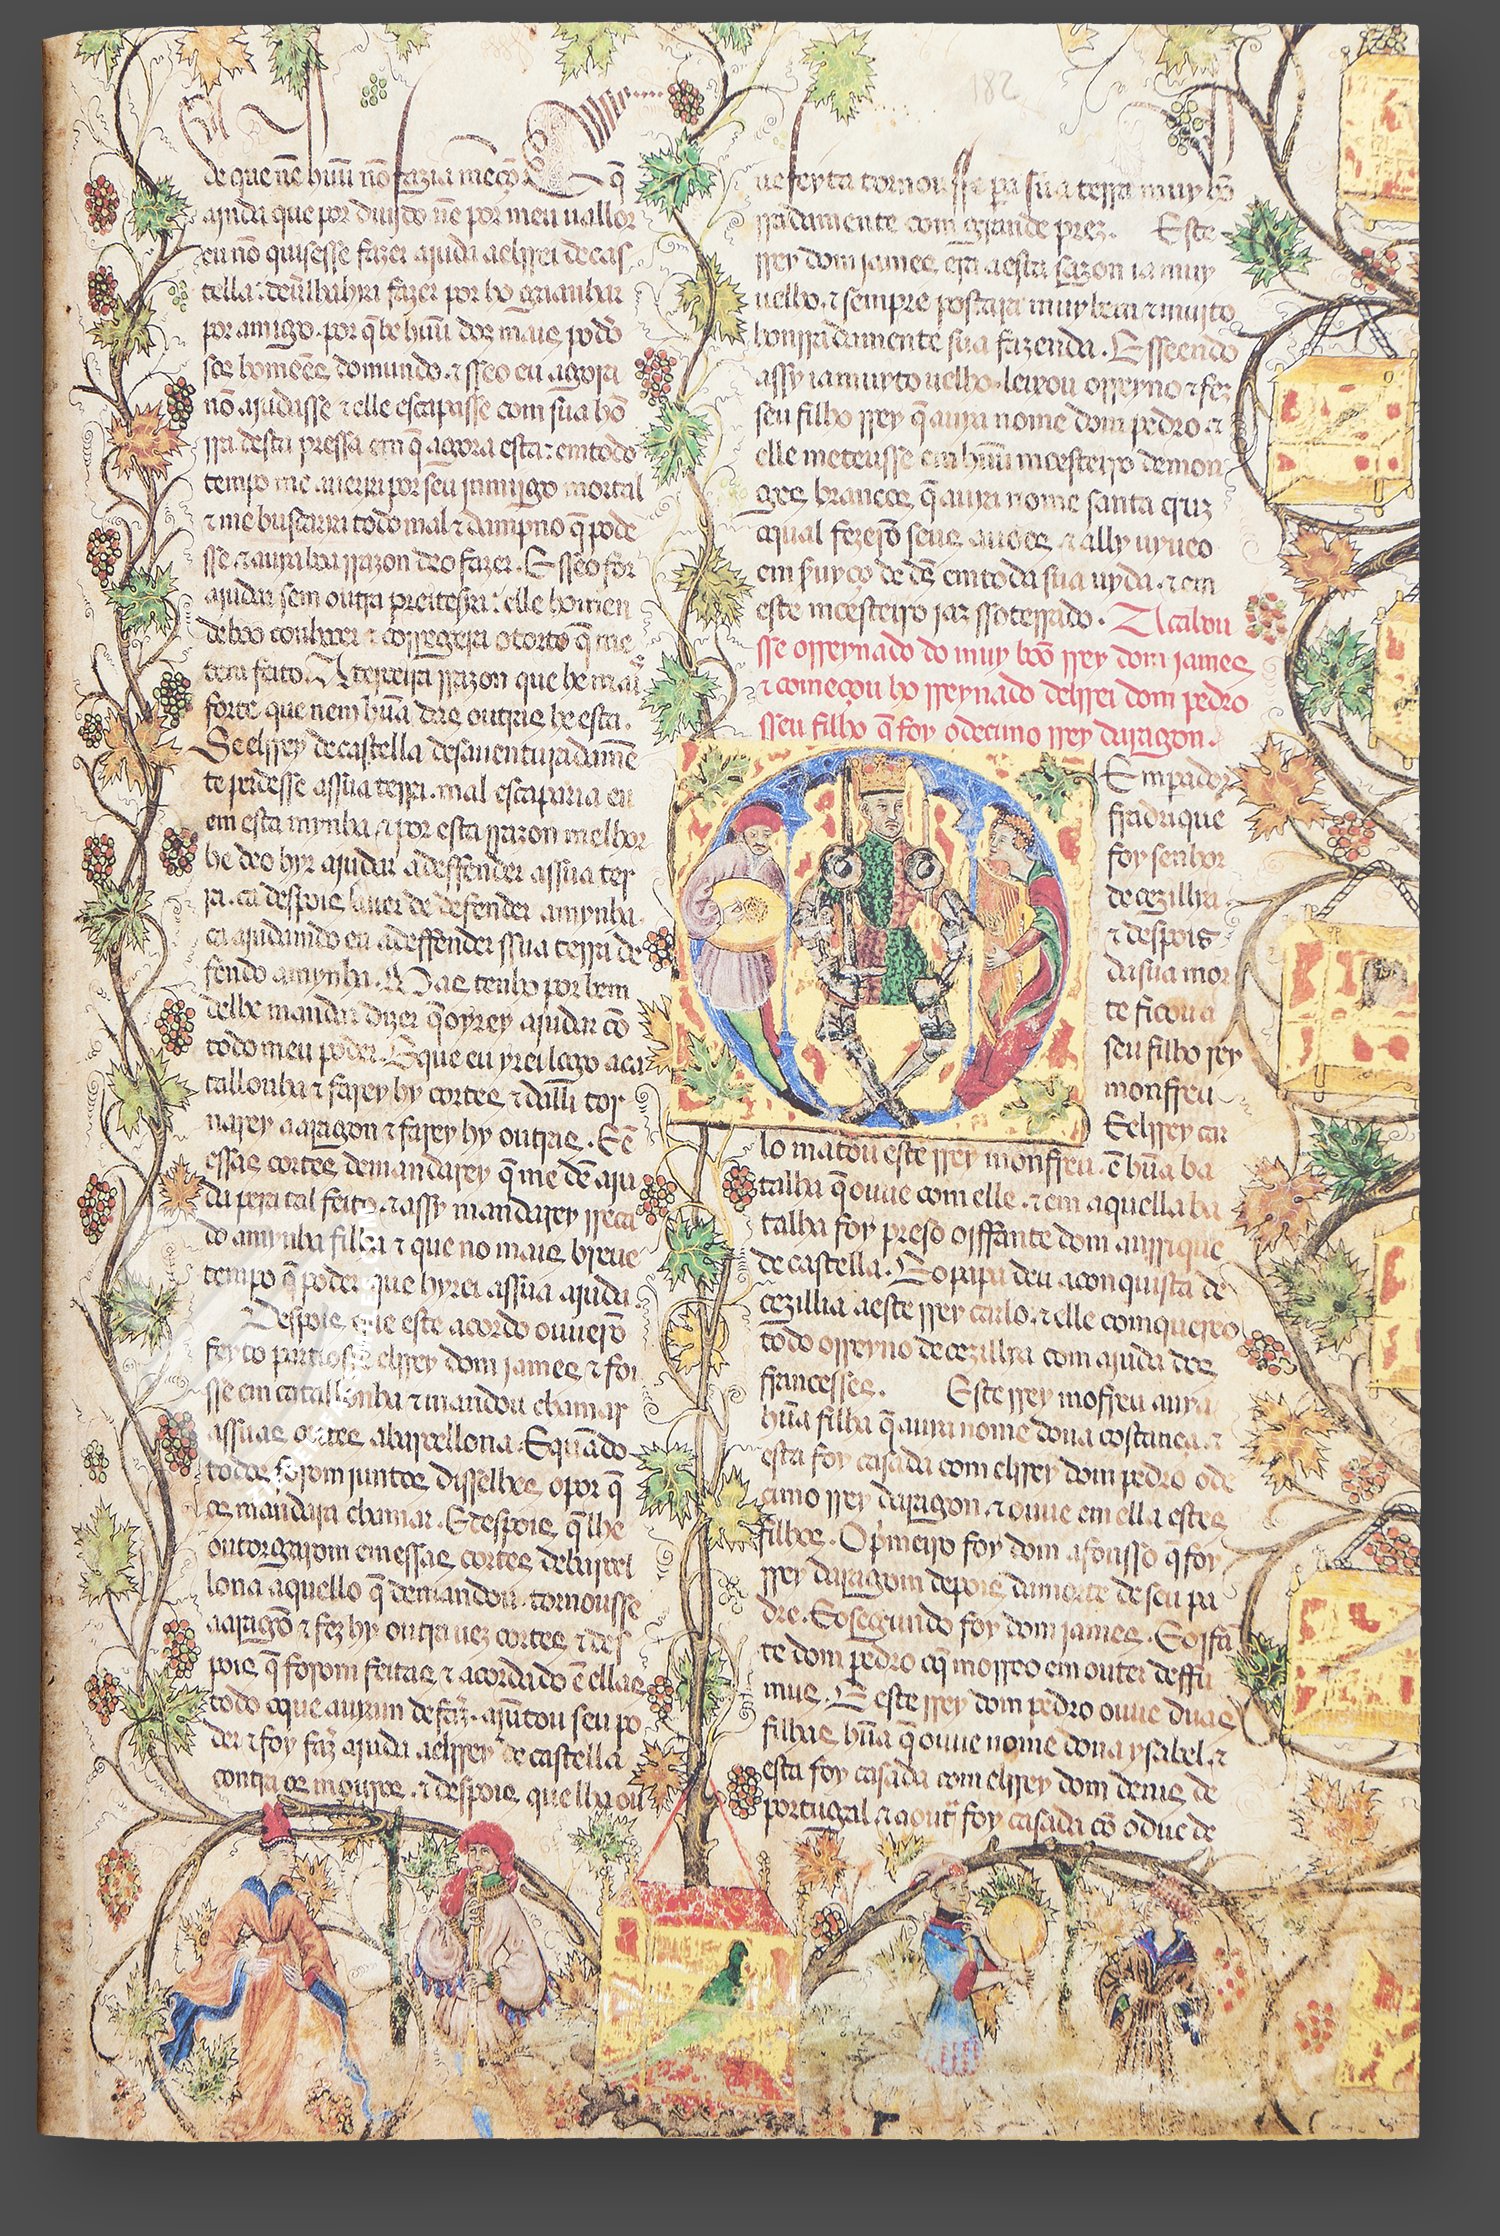 182
de que nẽ hũu nõ fazia mẽçõ. q̃
ajnda que por diujdo nẽ por meu uallor
eu nõ quisesse fazer ajuda aelrrei de cas
tella: deuilhahya fazer por ho guanhar
por amigo. por q̃ he hũu dos mais podo
sos homẽes do mundo. ⁊ sseo eu agora
nõ ajudasse ⁊ elle escapasse com sua hõ
rra desta pressa em q̃ agora esta: em todo
tempo me aueria por seu jnmijgo mortal
⁊ me buscaria todo mal ⁊ dampno q̃ pode
sse. ⁊ aura boa rrazon deo fazer. E sseo for
ajudar sem outra preitesya: elle homen
de boo conhocer ⁊ corregera o torto q̃ me
tem feito. A terceira rrazon que he mais
forte que nem hũa das outras he esta.
Se elrrey de castella desauenturadamẽ
te perdesse assua terra. mal escaparia eu
em esta mynha. ⁊ por esta rrazon melhor
he deo hyr ajudar adeffender assua ter
ra. ca despois auer de defender amynha.
ca ajudando eu adeffender ssua terra de
fendo amynha. Mas tenho por bem
delhe mandar dizer q̃ oyrey ajudar cõ
todo meu poder. E que eu yrei logo aca
tallonha ⁊ farey hy cortes ⁊ dalli tor
narey aaragon ⁊ farey hy outras. E ẽ
essas cortes demandarey q̃ me dẽ aju
da pera tal feito. ⁊ assy mandarey rreca
do amynha filha ⁊ que no mais breue
tempo q̃ poder que hyrei assua ajuda.
Despois que este acordo ouuerõ
feyto partiosse elrrey dom james ⁊ foi
sse em catallonha ⁊ mandou chamar
assuas cortes abarcellona. E quãdo
todos forom juntos disselhes opor q̃
os mandara chamar. E despois q̃ lhe
outorgarom em essas cortes de barcel
lona aquello q̃ demandou. tornousse
aaragõ ⁊ fez hy outra uez cortes ⁊ des
pois q̃ forom feitas ⁊ acordado ẽ ellas
todo oque auyam defaz̃. ajũtou seu po
der ⁊ foy faz̃ ajuda aelrrey de castella
contra os mouros. ⁊ despois quelha ou
ue feyta tornousse pa sua terra muy hõ
rradamente com grande prez. Este
rrey dom james era aesta sazon ia muy
uelho. ⁊ sempre postara muy bem ⁊ mujto
honrradamente sua fazenda. E sseendo
assy ia muyto uelho. leixou orreyno ⁊ fez
seu filho rrey q̃ auia nome dom pedro ⁊
elle meteusse em hũu moesteiro de mon
ges brancos q̃ auia nome santa cruz
oqual fezerõ seus auoos ⁊ ally uyueo
em s̃uyço de dẽ em toda sua uyda. ⁊ em
este moesteiro jaz ssoterrado. Acabou
sse orreynado do muy boõ rrey dom james
⁊ começou ho rreynado delrrei dom pedro
sseu filho q̃ foy o decimo rrey daragon.
Empador
fradarique
foy senhor
de cezillia
⁊ despois
da sua mor
te ficou a
seu filho rey
monfreu
E elrrey car
lo matou este rrey monfreu. ẽ hũa ba
talha q̃ ouue com elle. ⁊ em aquella ba
talha foy preso oiffante dom anrrique
de castella. Eo papa deu aconquista de
cezillia aeste rrey carlo. ⁊ elle comquereo
todo orreyno de cezillia com ajuda dos
francesses. Este rrey mofreu auya
hũa filha q̃ auia nome dona costança. ⁊
esta foy casada com elrrey dom pedro ode
cimo rrey daragon. ⁊ ouue em ella estes
filhos. O p̃meiro foy dom afonsso q̃ foy
rrey daragom depois damorte de seu pa
dre. Eosegundo foy dom james. Eoiffã
te dom pedro oq̃ morreo em outer deffu
mus. E este rrey dom pedro ouue duas
filhas, hũa q̃ ouue nome dona ysabel. ⁊
esta foy casada com elrrey dom denis de
portugal. ⁊ aoutr̃ foy casada cõ oduc de